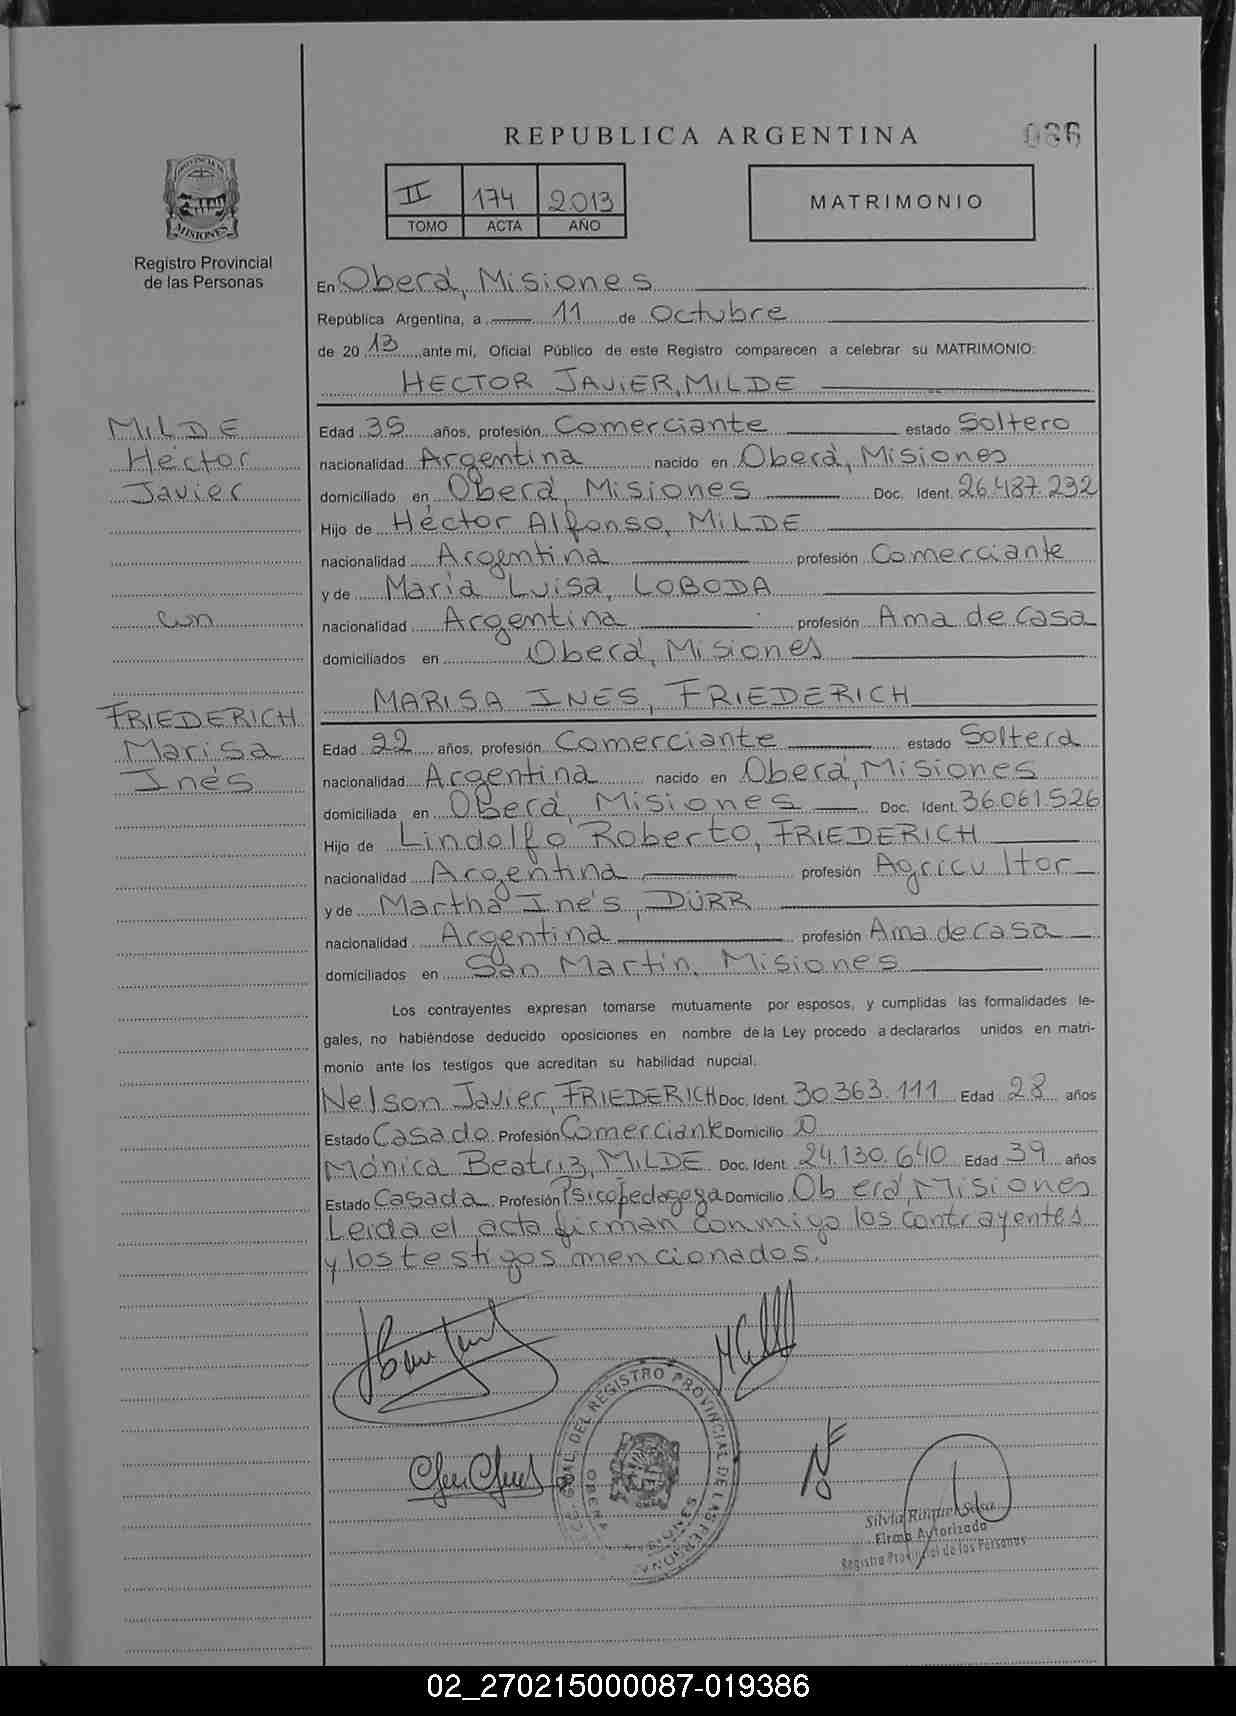 REPUBLICA ARGENTINA
086
II 174 2013
TOMO ACTA AÑO
MATRIMONIO
PROVINCIA DE
MISIONES
Registro Provincial
de las Personas
En Oberá, Misiones
República Argentina, a 11 de Octubre
de 20 13 ante mí, Oficial Público de este Registro comparecen a celebrar su MATRIMONIO:
HECTOR JAVIER, MILDE
MILDE
Héctor
Javier
con
FRIEDERICH
Marisa
Inés
Edad 35 años, profesión Comerciante estado Soltero
nacionalidad Argentina nacido en Oberá, Misiones
domiciliado en Oberá, Misiones Doc. Ident. 26.487.232
Hijo de Héctor Alfonso, MILDE
nacionalidad Argentina profesión Comerciante
y de María Luisa, LOBODA
nacionalidad Argentina profesión Ama de Casa
domiciliados en Oberá, Misiones
MARISA INES, FRIEDERICH
Edad 22 años, profesión Comerciante estado Soltera
nacionalidad Argentina nacido en Oberá, Misiones
domiciliada en Oberá, Misiones Doc. Ident. 36.061.526
Hijo de Lindolfo Roberto, FRIEDERICH
nacionalidad Argentina profesión Agricultor
y de Martha Inés, DÜRR
nacionalidad Argentina profesión Ama de casa
domiciliados en San Martín, Misiones
Los contrayentes expresan tomarse mutuamente por esposos, y cumplidas las formalidades le-
gales, no habiéndose deducido oposiciones en nombre de la Ley procedo a declararlos unidos en matri-
monio ante los testigos que acreditan su habilidad nupcial.
Nelson Javier, FRIEDERICH Doc. Ident. 30.363.111 Edad 28 años
Estado Casado Profesión Comerciante Domicilio O
Mónica Beatriz, MILDE Doc. Ident. 24.130.640 Edad 39 años
Estado Casada Profesión Psicopedagoga Domicilio Oberá, Misiones
Leida el acta firman conmigo los contrayentes
y los testigos mencionados.
DEL REGISTRO PROVINCIAL DE LAS PERSONAS
OBERA
MISIONES
Silvia Sosa
Firma Autorizada
Registro Provincial de las Personas
02_270215000087-019386